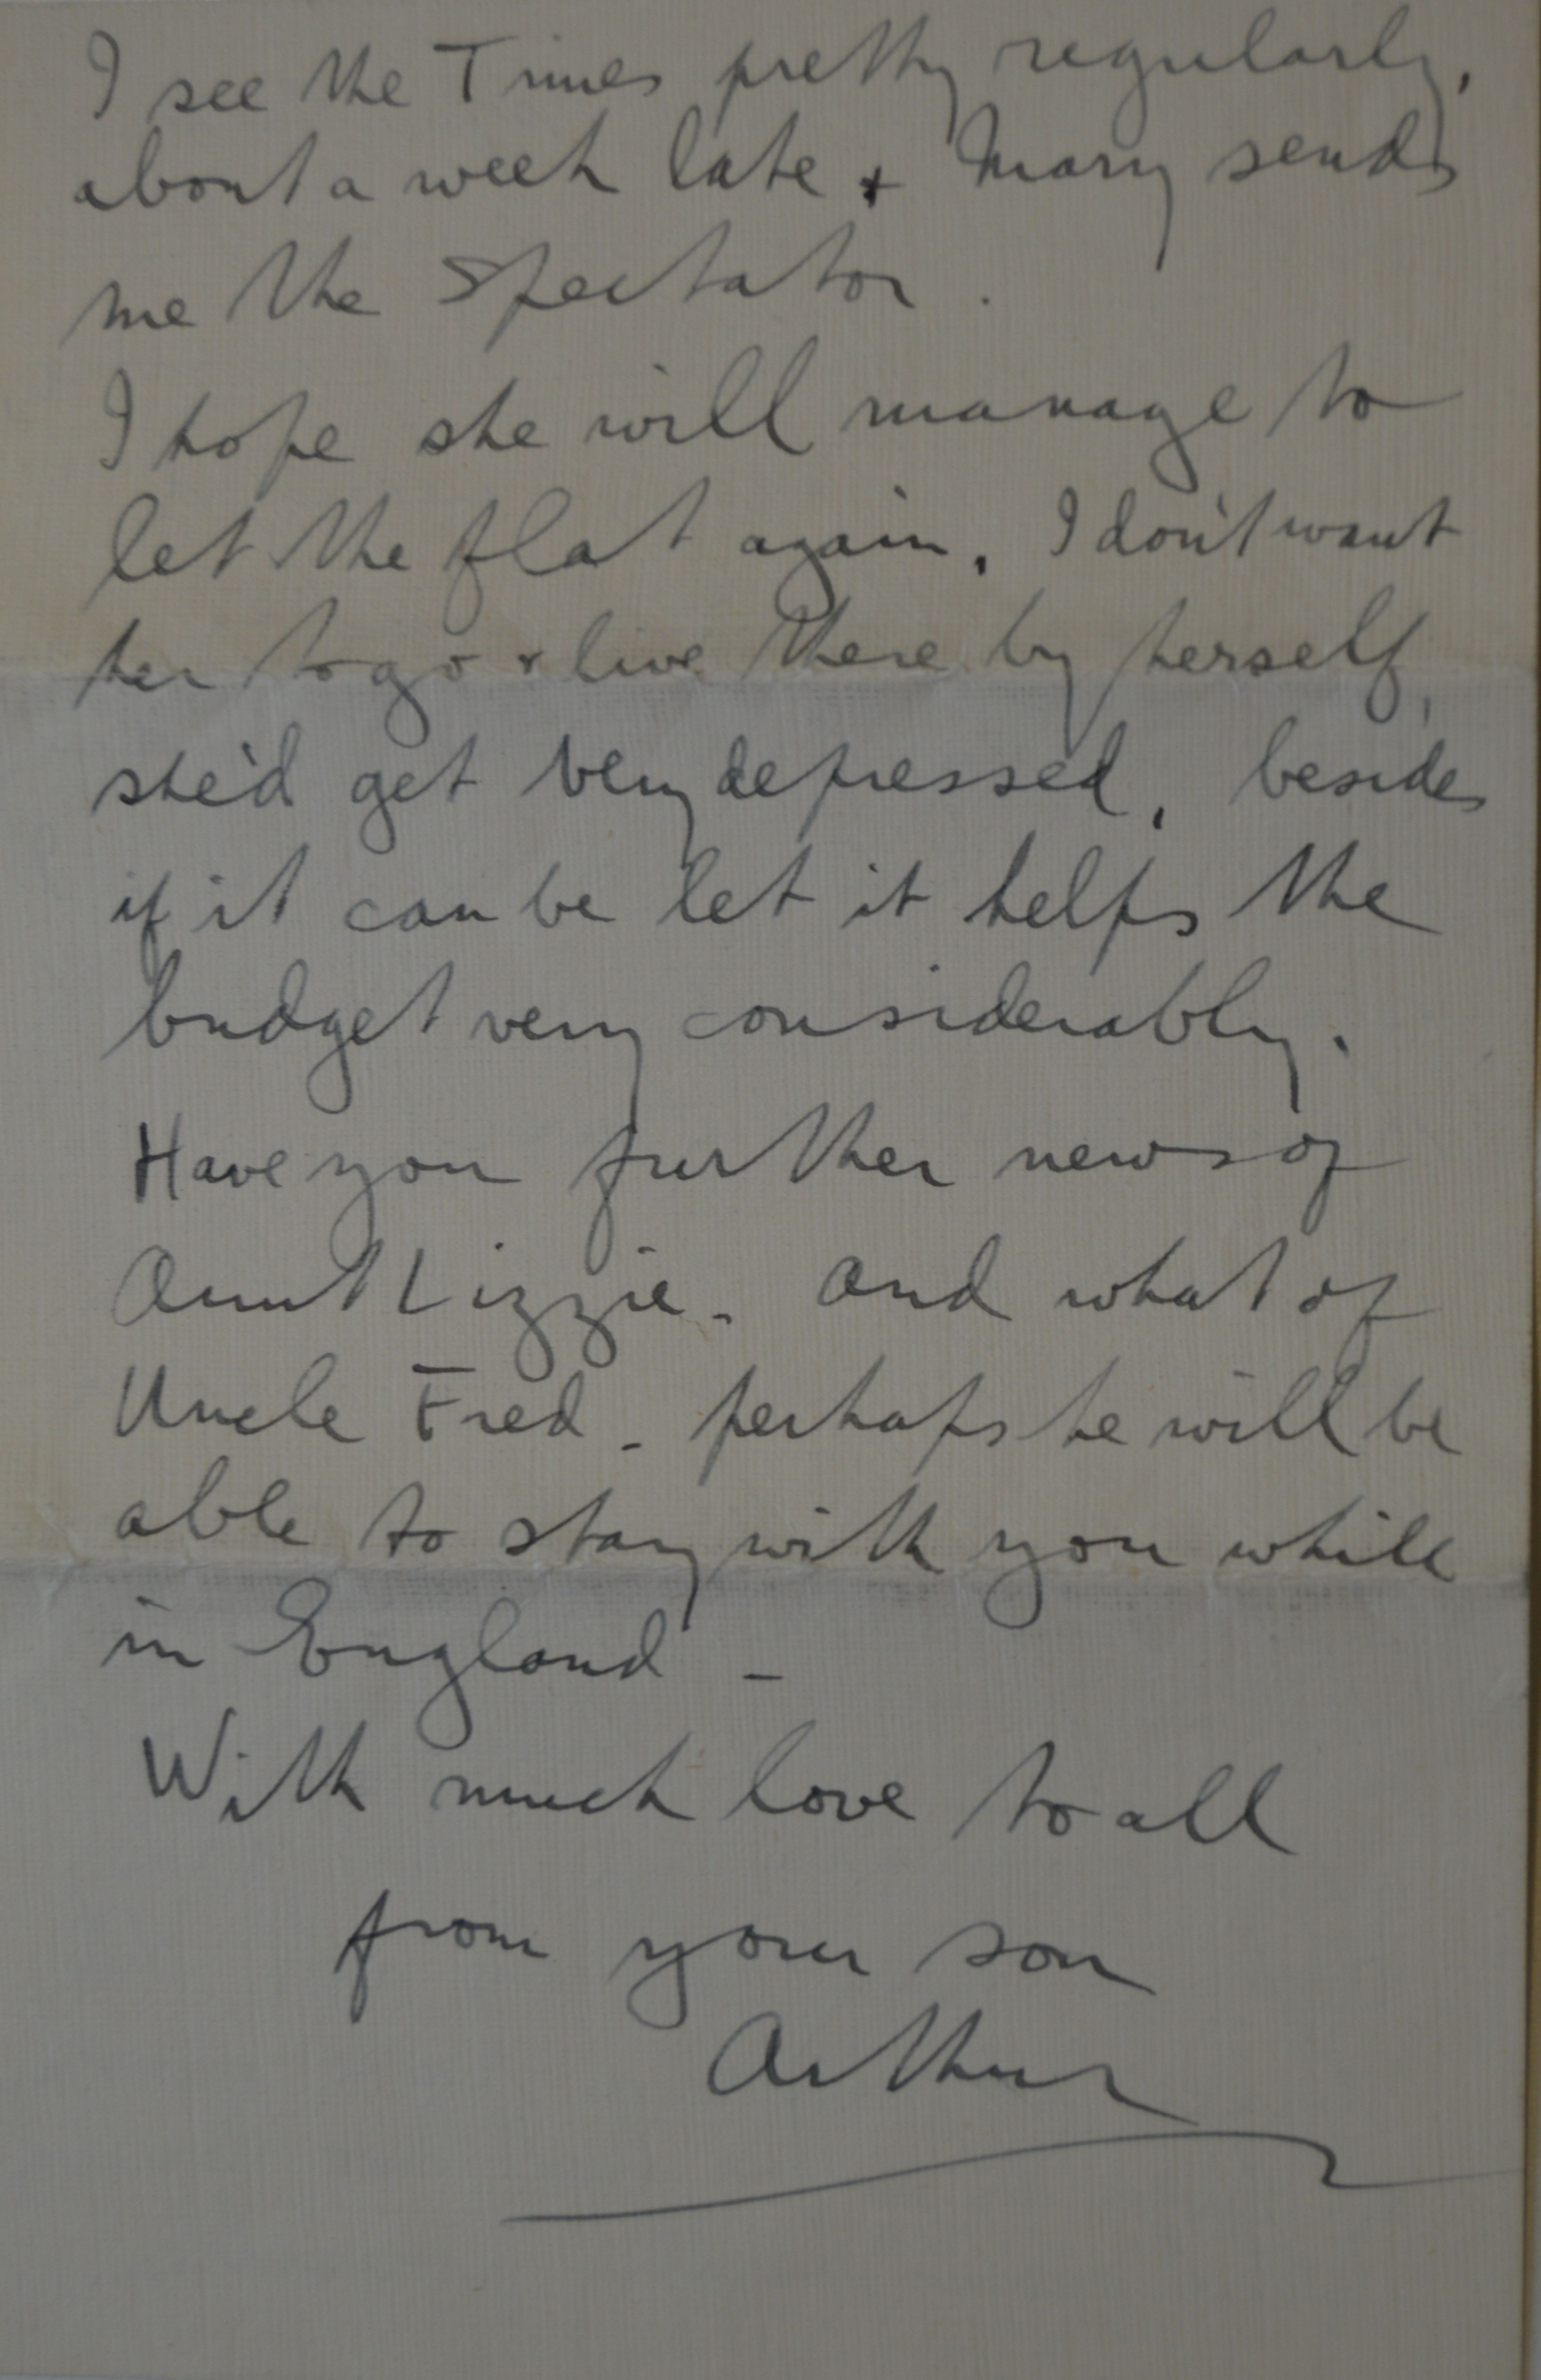 I see the Times pretty regularly,
about a week late + Mary sends
me the Spectator.
I hope she will manage to
let the flat again. I don't want
her to go + live there by herself,
she'd get very depressed, besides
if it can be let it helps the
budget very considerably.
Have you further news of
Aunt Lizzie. And what of
Uncle Fred - perhaps he will be
able to stay with you while
in England -
With much love to all
from your son
Arthur